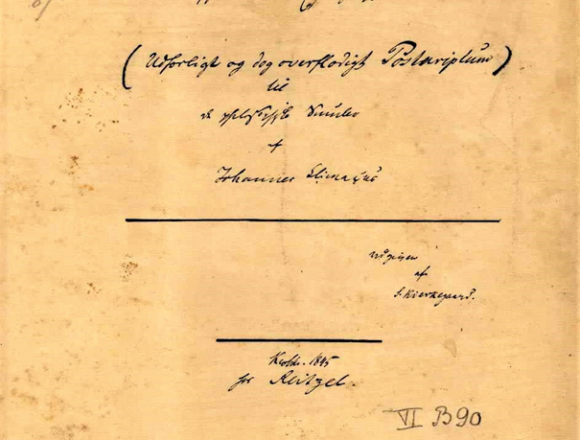 (Udførligt og dog overflødigt Postscriptum)
til
de philosophiske Smuler
af
Johannes Climacus
udgiven
af
S. Kierkegaard.
1845
Reitzel.
VI B90